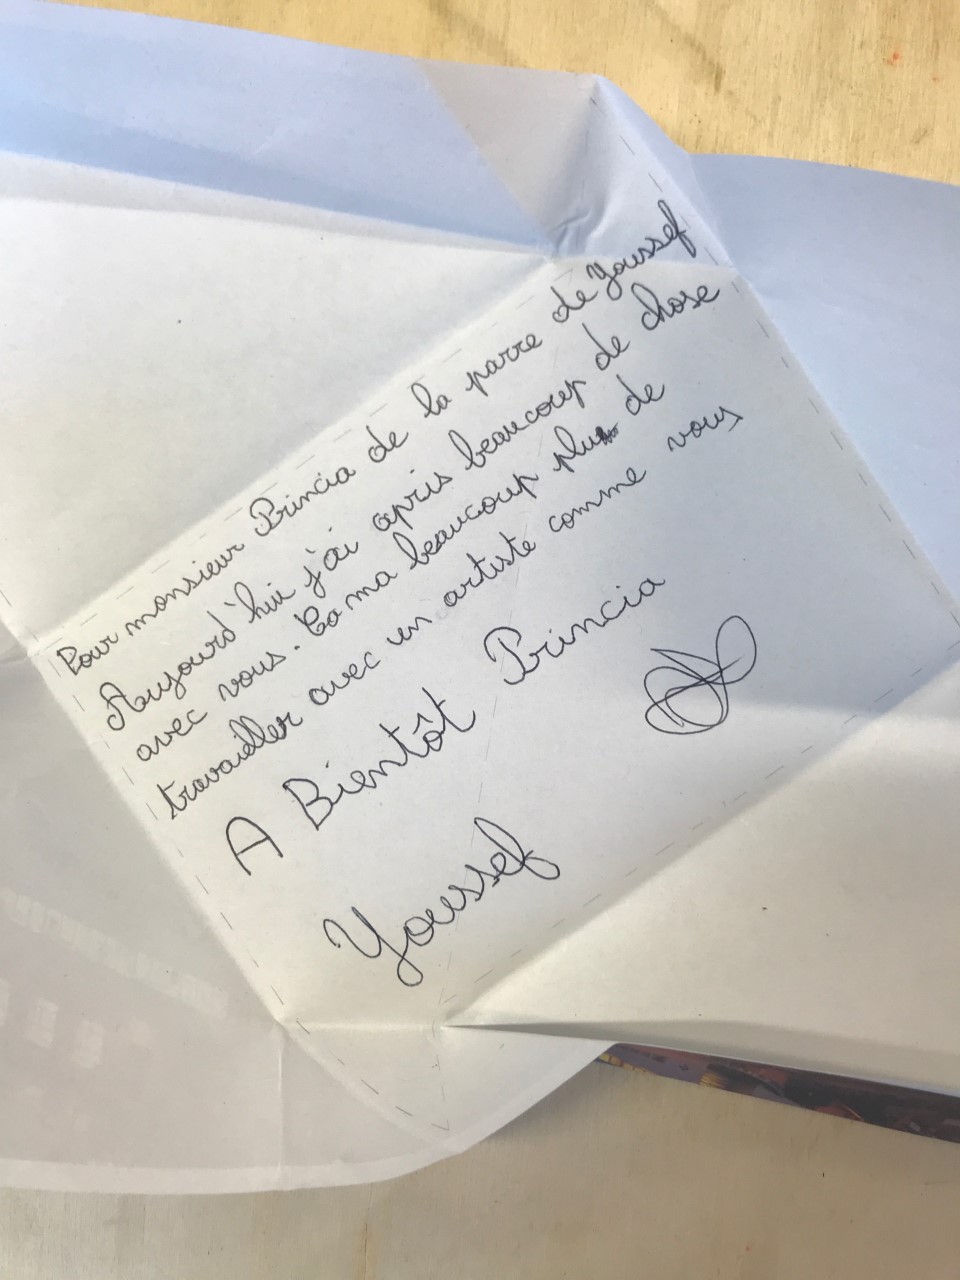 Pour monsieur Princia de la parre de Youssef
Aujourd'hui j'ai apris beaucoup de chose
avec vous. Ça ma beaucoup plu de
travailler avec un artiste comme vous
A Bientôt Princia
Youssef